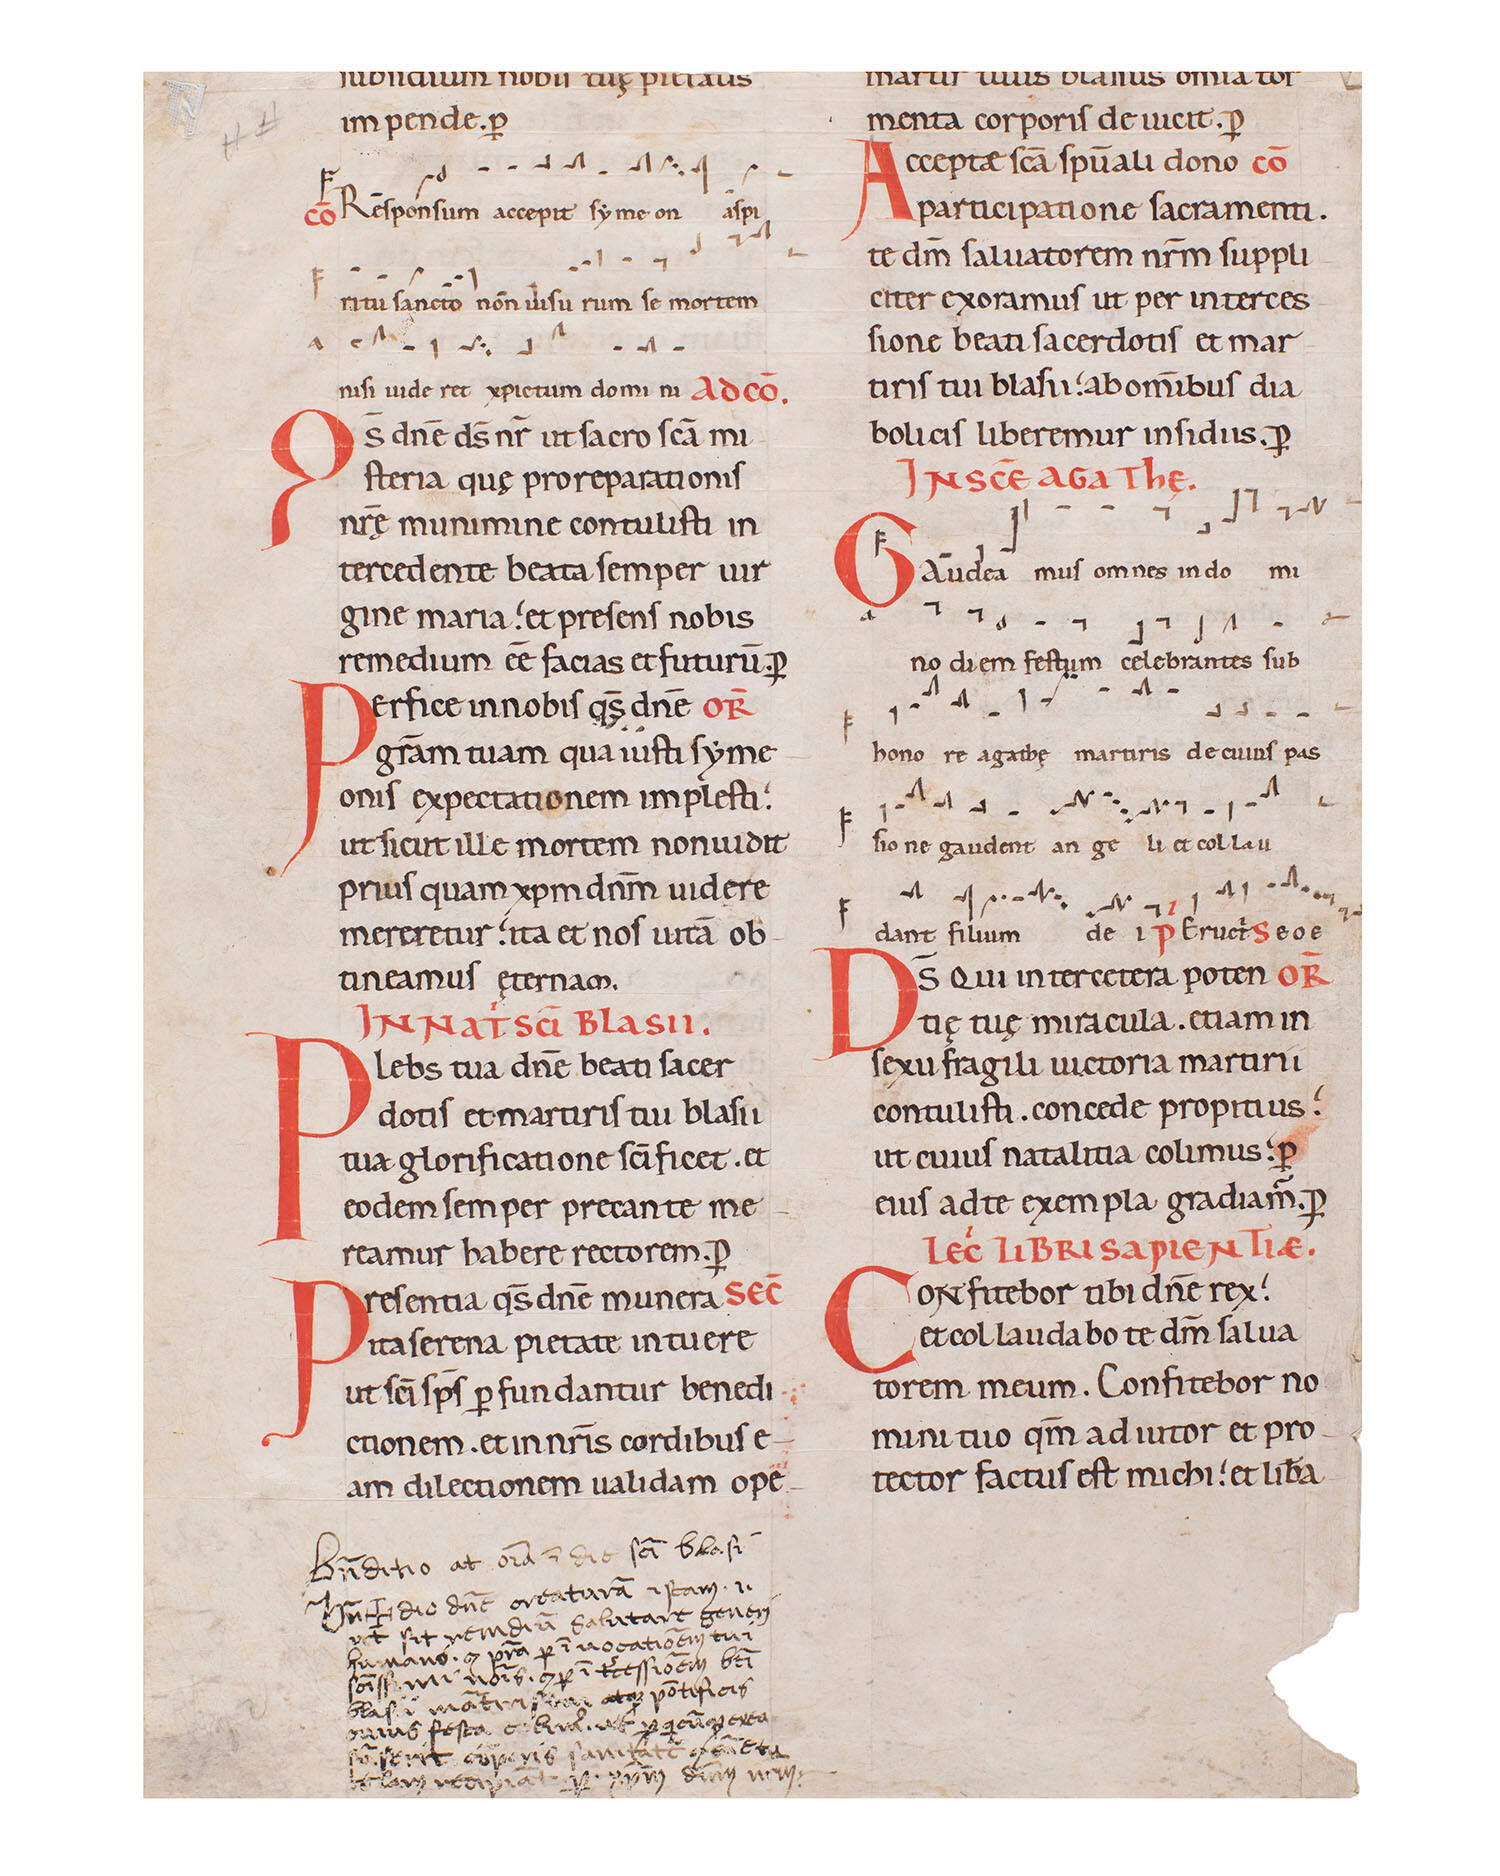 subsidium nobis tuę pietatis
impende. p̄
cō Rēsponsum accepit symeon aspi
ritu sancto non uisu rum se mortem
nisi uide ret xpictum domi ni Ad cō.
Q̄s dn̄e ds̄ nr̄ ut sacro scā mi
steria quę pro reparationis
nr̄ę munimine contulisti in
tercedente beata semper uir
gine maria. et presens nobis
remedium eē facias et futurū. p̄
Perfice in nobis qs̄ dn̄e OR̄
gr̄am tuam qua iusti syme
onis expectationem implesti.
ut sicut ille mortem non uidit
prius quam xp̄m dn̄m uidere
mereretur. ita et nos uitā ob
tineamus ęternam.
IN NAT̄ SCĪ BLASII.
Plebs tua dn̄e beati sacer
dotis et martiris tui blasii
tua glorificatione scīficet. et
eodem semper precante me
reamur habere rectorem. p̄
Presentia qs̄ dn̄e munera SEC̄
ita serena pietate intuere
ut scī sp̄s p̄fundantur benedi
ctionem. et in nr̄is cordibus e
am dilectionem ualidam ope
Bn̄ditio at orā ī die scī blasi
Bn̄ ✝ dic dn̄e creaturā istam
ut sit remediū salutare generi
humano. p̄ra p ī uocationem tui
scīssimi noīs. p ī t̄cessionem btī
blasii mātiris pōtificis
cuius festa
corporis sanitatē
recipiāt p xp̄m dn̄m nr̄m.
martir tuus blasius omia tor
menta corporis deuicit. p̄
Acceptae scā sp̄uali dono cō
participatione sacramenti.
te dm̄ saluatorem nr̄m suppli
citer exoramus ut per interces
sione beati sacerdotis et mar
tiris tui blasii. ab omībus dia
bolicis liberemur insidiis. p̄
IN SCĒ AGATHĘ.
Gaudea mus omnes in do mi
no diem festum celebrantes sub
hono re agathę martiris de cuius pas
sio ne gaudent an ge li et col lau
dant filium de i P Eruct̄ S e o e
Ds̄ qui inter cetera poten OR̄
tię tuę miracula. etiam in
sexu fragili uictoria martirii
contulisti. concede propitius.
ut cuius natalitia colimus. p̄
eius ad te exempla gradiam̄. p̄
LEC̄ LIBRI SAPIENTIAE.
Confitebor tibi dn̄e rex.
et collaudabo te dm̄ salua
torem meum. Confitebor no
mini tuo qm̄ adiutor et pro
tector factus est michi. et liba